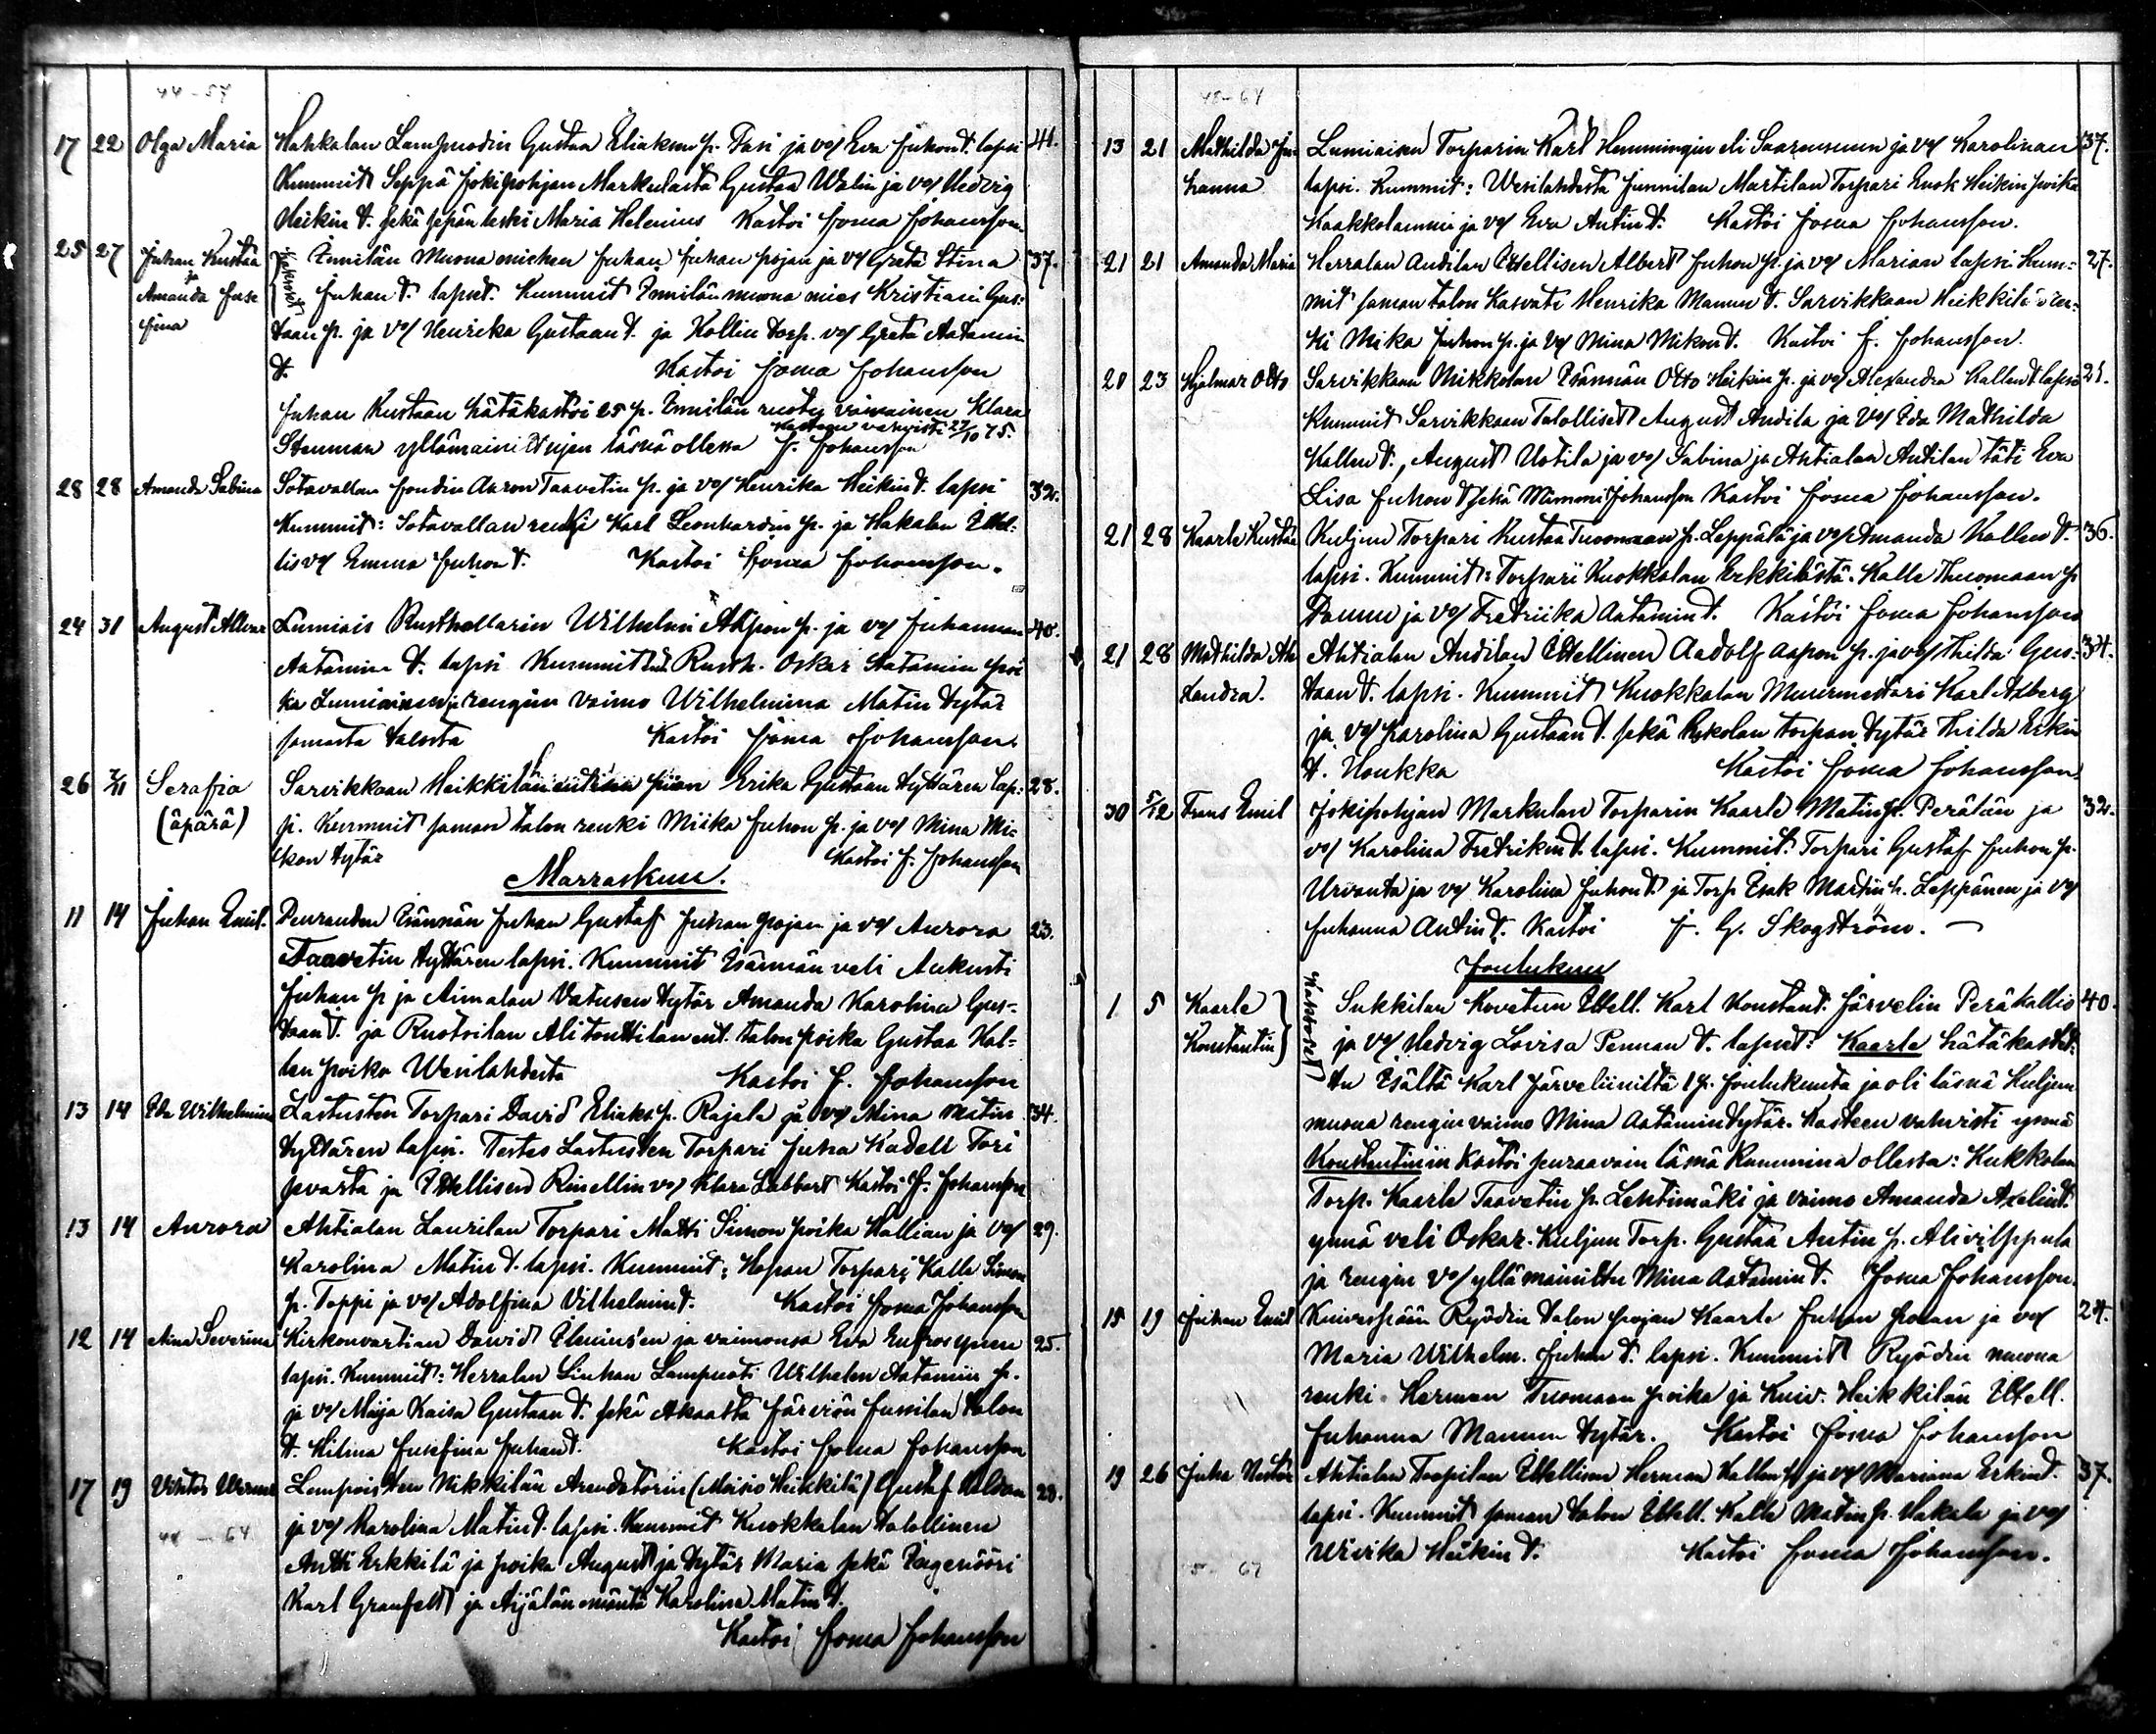 44-57
17 22 Olga Maria Hakkalan Lampuodin Gustaa Eliaksen p. Pasi ja vo/ Eva Juhon t. lapsi 44.
Kummit Seppä Jokipohjan Markulasta Gustaa Walin ja vo/ Hedvig
Heikin t. sekä sepän leski Maria Helenius Kastoi Josua Johansson
25 27 Juhan Kustaa ja Amanda Josefina Kaksoset Innilän Muonamiehen Juhan Juhan pojan ja vo/ Greta Stina 37.
Juhan t. lapset. Kummit Innilän muona mies Kristian Gus-
taan p. ja vo/ Henrika Gustaan t. ja Kollin torp. vo/ Greta Aatamin
t. Kastoi Josua Johansson
Juhan Kustaan hätäkastoi 25 p. Innilän ruotu vaivainen Klara
Stenman yllämainittujen läsnä ollessa kasteen vahvisti 27/10 75. J. Johansson
28 28 Amanda Sabina Sotavallan Jondin Aaron Taavetin p. ja vo/ Henrika Heikin t. lapsi 32.
Kummit: Sotavallan renki Karl Leonhardin p. ja Hakalan Ittel-
lis vo/ Emma Juhon t. Kastoi Josua Johansson.
24 31 August Lumiais Rusthollarin Wilhelmi p. ja vo/ Juhannan 40.
Aatamin t. lapsi Kummit Rusth. Oskar Aatamin poi
ka rengin vaimo Wilhelmina Matin tytär
samasta talosta Kastoi Josua Johansson.
26 7/11 Serafia (äpärä) Sarvikkaan Heikkilän piian Erika Gustaan tyttären lap- 28.
si. Kummit saman talon renki Miika Juhon p. ja vo/ Mina Mi-
kon tytär Kastoi J. Johansson
Marraskuu.
11 14 Juhan Emil. Penrandan Isännän Juhan Gustaf Juhan pojan ja vo/ Aurora 23.
Taavetin tyttären lapsi. Kummit Isännän veli Aukusti
Juhan p ja Aimalan Vatusen tytär Amanda Karolina Gus-
taan t. ja Ruotsilan Alitonttilan ent. talon poika Gustaa Kal-
len poika Wesilahdesta Kastoi J. Johansson
13 14 Ida Wilhelmina Lastusten Torpari David Eliaks. p. Rajala ja vo/ Mina Matin 34.
tyttären lapsi. Testes Lastusten Torpari Juha Kadell Tori
ja Ittellisen Rinellin vo/ Klara Labbart Kastoi J. Johansson
13 14 Aurora Ahtialan Laurilan Torpari Matti Simon poika Hallian ja vo/ 29.
Karolina Matin t. lapsi. Kummit: Hapan Torpari Kalle Simon
p. Toppi ja vo/ Adolfina Vilhelmin t. Kastoi Josua Johansson
12 14 Aina Severina Kirkonvartian David Elenius'en ja vaimonsa Eva Eufrosynen 25.
lapsi. Kummit: Herralan Linhan Lampuoti Wilhelm Aatamin p.
ja vo/ Maija Kaisa Gustaan t. sekä Akaasta Järviön Jussilan talon
t. Hilma Josefina Juhan t. Kastoi Josua Johansson
17 19 Viktor Werner Lempoisten Nikkilän Arendatorin (Moisio Heikkilä) Gustaf 28.
44 - 64 ja vo/ Karolina Matin t. lapsi. Kummit Kuokkalan talollinen
Antti Erkkilä ja poika August ja tytär Maria sekä Ingenööri
Karl Granfelt ja Arjälän emäntä Karolina Matin t.
Kastoi Josua Johansson
48-64
13 21 Mathilda Johanna Lumiaisen Torparin Karl Hemmingin eli Saarensuun ja vo/ Karolinan 37.
lapsi. Kummit: Wesilahdesta Junnilan Martilan Torpari Enok Heikin poika
Kaakkolammi ja vo/ Eva Antin t. Kastoi Josua Johansson.
21 21 Amanda Maria Herralan Andilan Ittellisen Albert Juhon p. ja vo/ Marian lapsi. Kum- 27.
mit saman talon kasvatti Henrika Mannun t. Sarvikkaan Heikkilä ren-
ki Mika Juhon p. ja vo/ Mina Mikon t. Kastoi J. Johansson.
20 23 Hjalmar Otto Sarvikkaan Mikkolan Isännän Otto Heikin p. ja vo/ Alexandra Kallen t. lapsi 21.
Kummit Sarvikkaan Talolliset August Andila ja vo/ Ida Mathilda
Kallen t., August Uotila ja vo/ Sabina ja Ahtialan Antilan täti Eva
Lisa Juhon t. sekä Mimmi Johansson Kastoi Josua Johansson.
21 28 Kaarle Kustaa Kuljun Torpari Kustaa Tuomaan p. Leppälä ja vo/ Amanda Kallen t. 36.
lapsi. Kummit: Torpari Kuokkalan Erkkilästä. Kalle Thuomaan p
ja vo/ Fredriika Aatamin t. Kastoi Josua Johansson
21 28 Mathilda Alexandra. Ahtialan Andilan Ittellinen Aadolf Aapon p. ja vo/ Thilda Gus- 34.
taan t. lapsi. Kummit Kuokkalan Muurmestari Karl Åberg
ja vo/ Karolina Gustaan t. sekä torpan tytär Thilda Erkin
t. Houkka Kastoi Josua Johansson.
30 5/12 Frans Emil Jokipohjan Markulan Torparin Kaarle Matin p. Perälän ja 32.
vo/ Karolina Fredrikin t. lapsi. Kummit: Torpari Gustaf Juhon p.
Urvanta ja vo/ Karolina Juhon t. ja Torp Isak Martin p. Leppänen ja vo/
Juhanna Antin t. Kastoi J. G. Skogström.
Joulukuu
1 5 Kaarle Konstantin Kaksoset Sukkilan Kovetun Ittell. Karl Konstant. Järvelin Peräkallio 40.
ja vo/ Hedvig Lovisa Pennan t. lapset: Kaarle hätäkastet-
tu Isältä Karl Järveliiniltä 1 p. Joulukuuta ja oli läsnä Kuljun
muona rengin vaimo Mina Aatamin tytär. Kasteen vahvisti ynnä
Konstantinin kastoi seuraavain läsnä kummina ollessa: Kukkolan
Torp. Kaarle Taavetin p. Lehtimäki ja vaimo Amanda Axelin t.
ynnä veli Oskar. Kuljun Torp. Gustaa Antin p. Alivilppula
ja rengin vo/ yllämainittu Mina Aatamin t. Josua Johansson.
15 19 Juhan Emil Kuivaspään Ryödin talon pojan Kaarle Juhan pojan ja vo/ 24.
Maria Wilhelm. Juhan t. lapsi. Kummit Ryödin muona
renki Herman Tuomaan poika ja Kuiv. Heikkilän Ittell.
Juhanna Mannun tytär. Kastoi Josua Johansson
19 26 Juha Nestor Ahtialan Toopilan Ittellisen Herman Kallen p. ja vo/ Mariana Erkin t. 37.
lapsi. Kummit saman talon Ittell. Kalle Matin p. Hakala ja vo/
Wivika Heikin t. Kastoi Josua Johansson.
5- 67